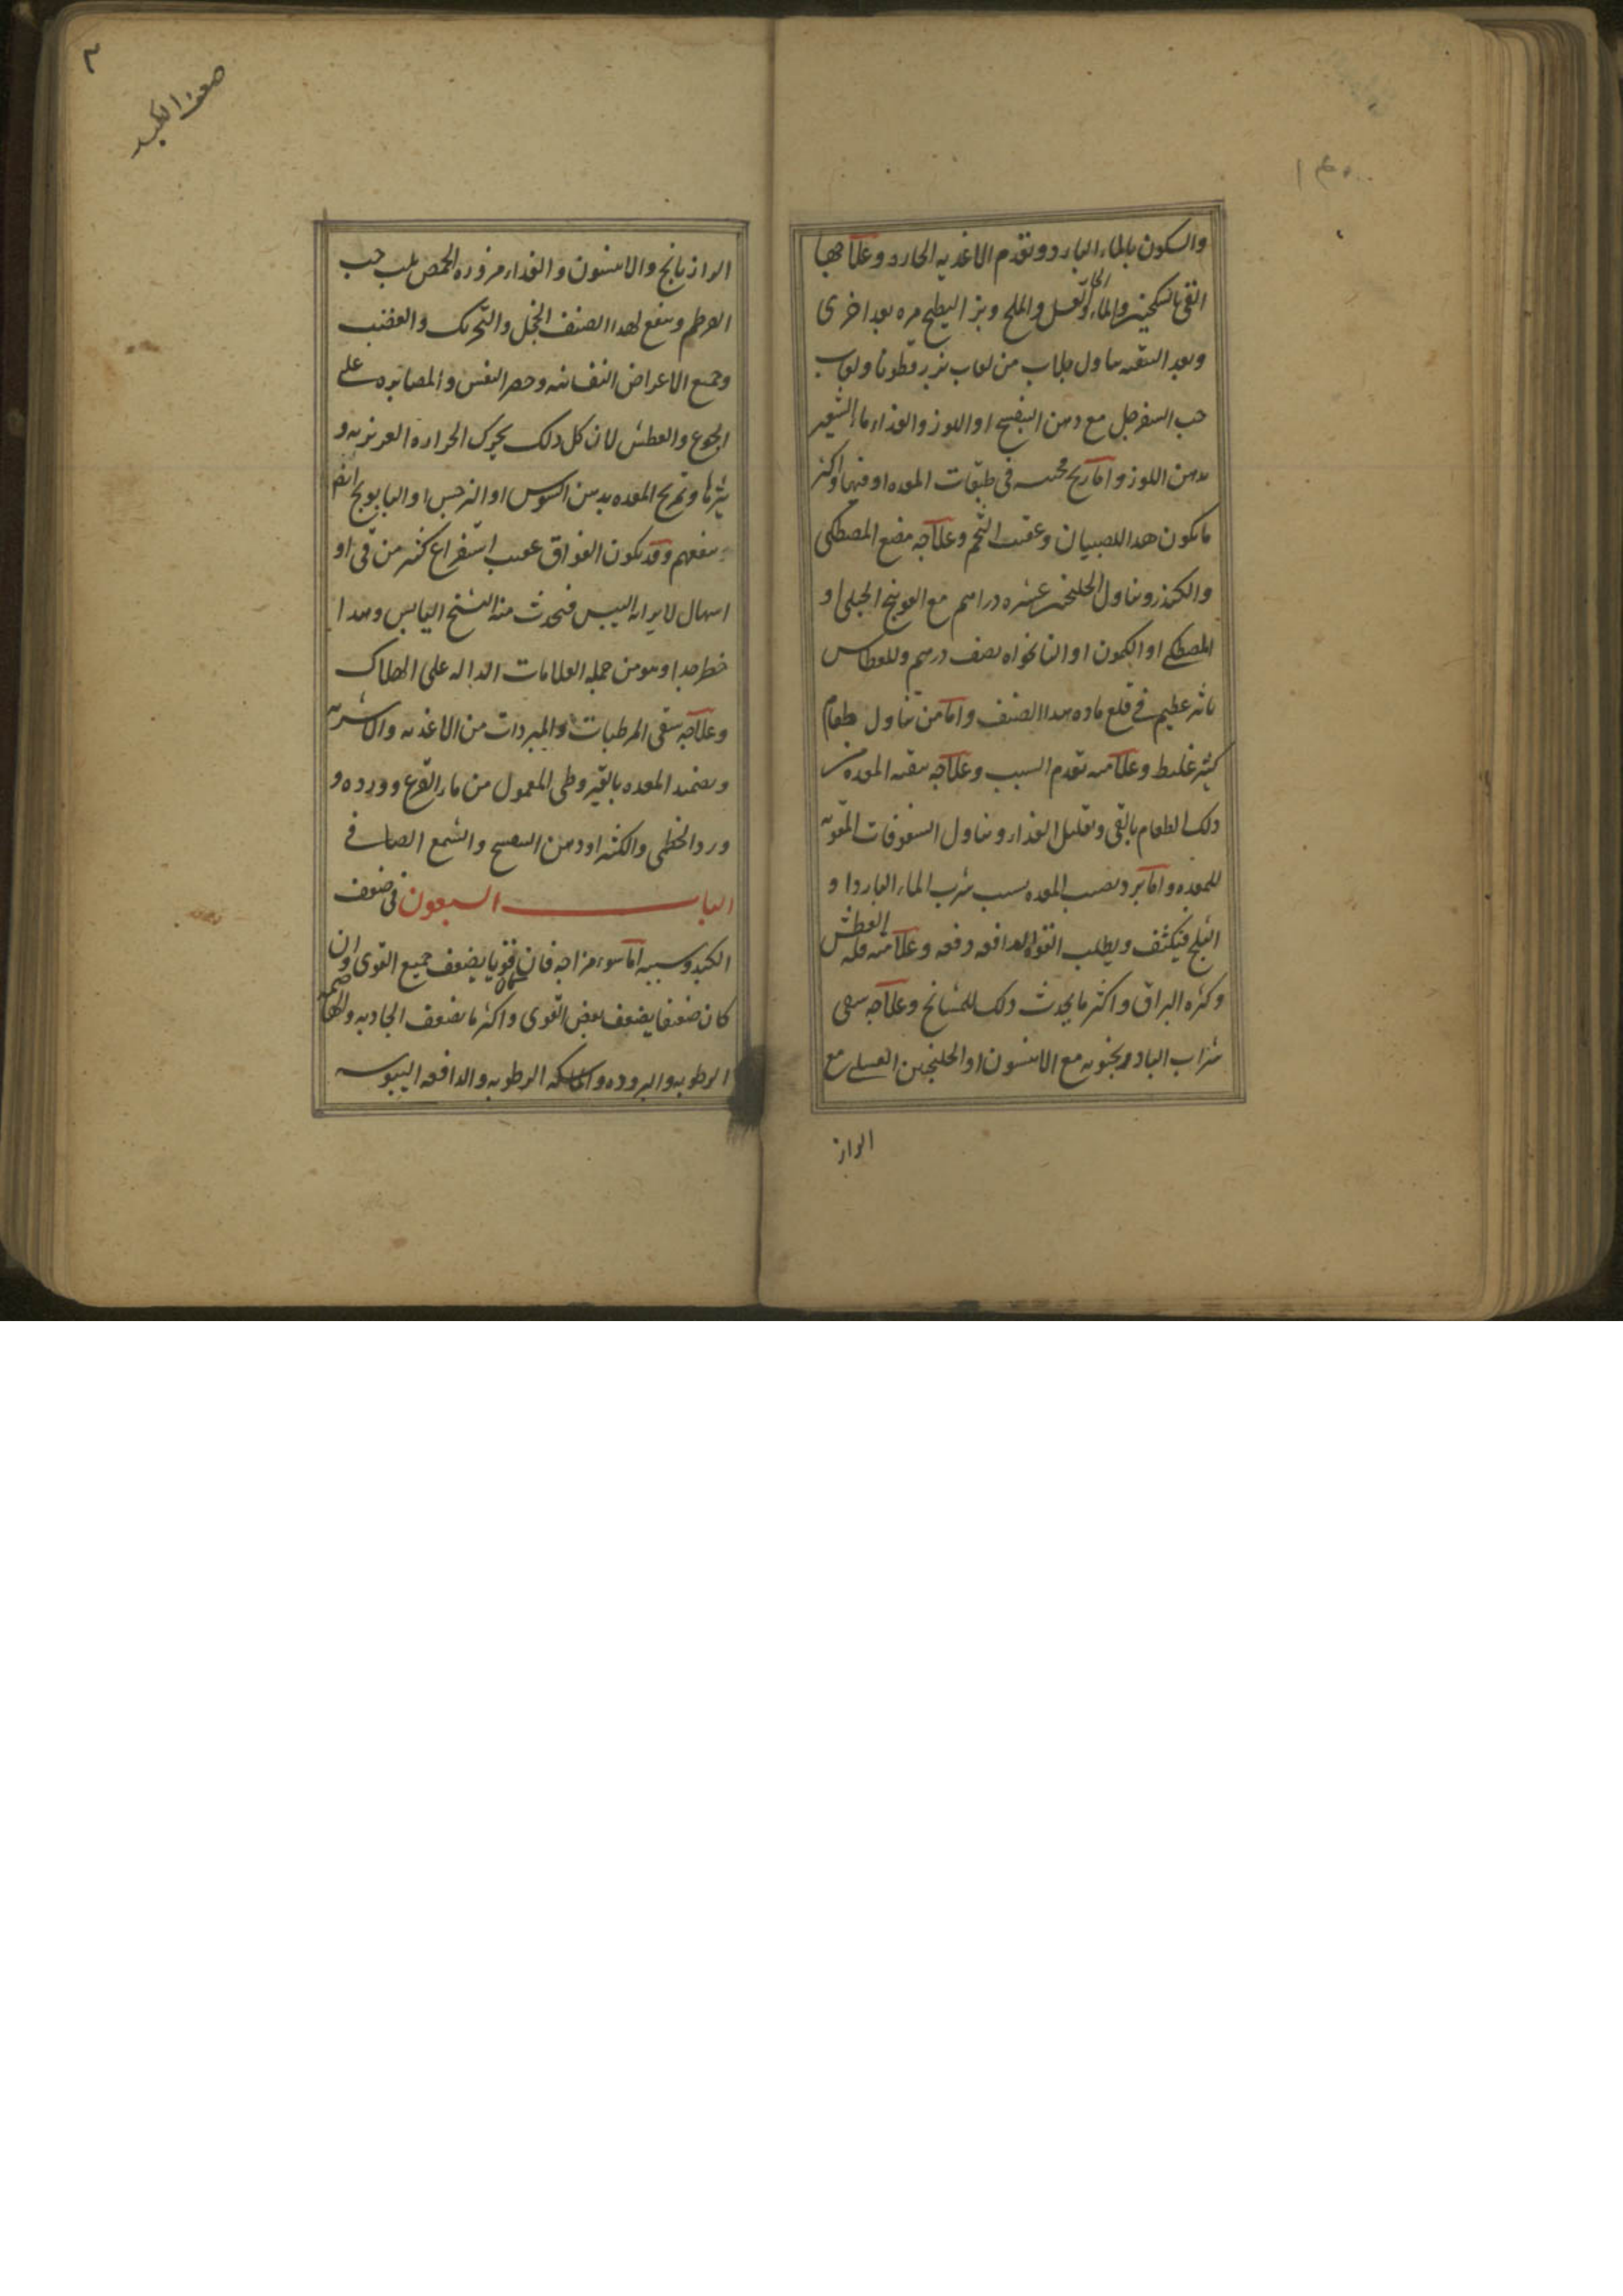 والسكون بالماء البارد وتقدم الاغذيه الحاره وعلاجها
القى بالسكنجبين والماء الحار والعسل والملح وبزر البطيخ مره بعد اخرى
وبعد التنقيه تناول جلاب من لعاب بزر قطونا ولعاب
حب السفرجل مع دهن البنفسج او اللوز والغذاء ماء الشعير
بدهن اللوز واما ريح محتبسه فى طبقات المعده او فيها واكثر
ما يكون هذا للصبيان وعقيب التخم وعلاجه مضغ المصطكى
والكندر وتناول الجلنجبين عشره دراهم مع الفوتنج الجبلى او
المصطكى او الكمون او النانخواه نصف درهم وللعطاس
تاثير عظيم فى قلع ماده هذا الصنف واما من تناول طعام
كثير غليظ وعلامته تقدم السبب وعلاجه تنقيه المعده من
ذلك الطعام بالقى وتقليل الغذاء وتناول السفوفات المقويه
للمعده واما برد يصيب المعده بسبب شرب الماء البارد او
الثلج فيكثف ويطلب القوه الدافعه دفعه وعلامته قله العطش
وكثره البزاق واكثر ما يحدث ذلك للمشايخ وعلاجه سقى
شراب البادرنجبويه مع الانيسون او الجلنجبين العسلى مع
الراز
٣
ضعف الكبد
الرازيانج والانيسون والغذاء مزوره الحمص بلب حب
القرطم وينفع لهذا الصنف الخجل والتحريك والغضب
وجميع الاعراض النفسانيه وحصر النفس والمصابره على
الجوع والعطش لان كل ذلك يحرك الحراره الغريزيه و
يثيرها وتمريخ المعده بدهن السوسن او النرجس او البابونج
ينفعهم وقد يكون الفواق عقيب استفراغ كثير من قى او
اسهال لايراثه اليبس فيحدث منه التشنج اليابس وهذا
خطر جدا وهو من جمله العلامات الداله على الهلاك
وعلاجه سقى المرطبات والمبردات من الاغذيه والاشربه
وتضميد المعده بالقيروطى المعمول من ماء القرع وورده و
ورد الخطمى والكثيرا ودهن البنفسج والشمع الصافى
الباب السبعون فى ضعف
الكبد وسببه اما سوء مزاجه فان كان قويا يضعف جميع القوى وان
كان ضعيفا يضعف بعض القوى واكثر ما يضعف الجاذبه والهاضمه
الرطوبه والبروده والماسكه الرطوبه والدافعه اليبوسه